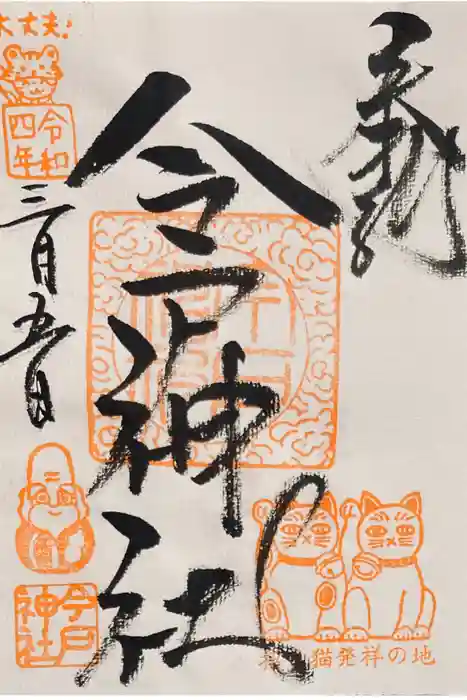 奉拝
今戸神社
大丈夫!
令和
四年
三月五日
今戸
神社
招き猫発祥の地